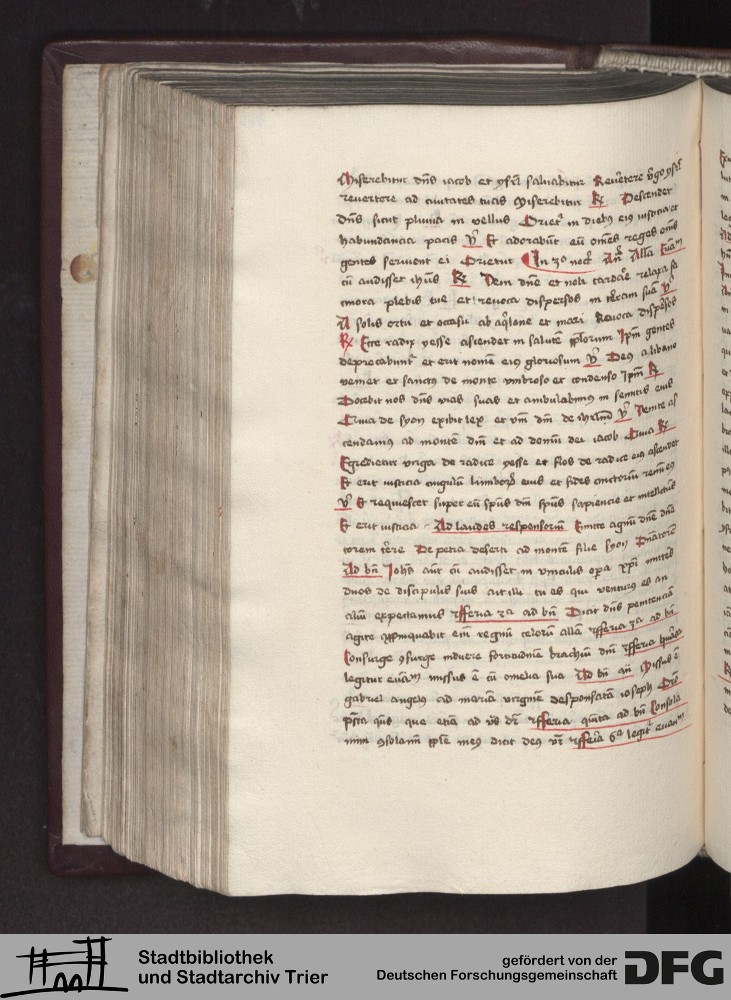 Miserebitur dns iacob et ysrl saluabitur Reuertere v̄go ysrl
reuertere ad ciuitates tuas Miserebitur R Descendet
dns sicut pluuia in vellus Orietur in diebus eius iusticia et
habundancia pacis V Et adorabūt eū omēs reges omēs
gentes seruient ei Orietur In 3o noct̄ An̄ Allā Euam
cū audisset ihūs R Veni dn̄e et noli tardāe relaxa fa
cinora plebis tue et reuoca dispersos in t̄ram suā V
A solis ortu et occasu ab aq̄lone et mari Reuoca dispersos
R Ecce radix yesse ascendet in salutē pplorum Ipm gentes
deprecabunt̄ et erit nomē eius gloriosum V Deus a libano
veniet et sanctus de monte vmbroso et condenso Ipm R
Docebit nos dns vias suas et ambulabimus in semitis eius
Quia de syon exibit lex et v̄m dni de ihrlm V Venite as
cendamus ad montē dni et ad domū dei iacob Quia R
Egredietur virga de radice yesse et flos de radice eius ascendet
Et erit iusticia cingulū lumborū eius et fides cinctoriū renū eius
V Et requiescet super eū spūs dni spūs sapiencie et intellctus
Et erit iusticia Ad laudes responsoriū Emitte agnū dn̄e dnā
torem t̄rre De petra deserti ad montē filie syon Dnatorē
Ad bn̄ Johēs aūt cū audisset in vinculis opera xp̄i mittēs
duos de discipulis suis ait illi tu es qui venturus es an
aliū expectamus fferia 2a ad bn̄ Dicit dns penitenciā
agite appinquabit eīm regnū celorū allā fferia 3a ad bn̄
Consurge consurge induere fortitudinē brachiū dni fferia quarta
legitur euām missus ē cū omelia sua Ad bn̄ an̄ Missus ē
gabriel angelus ad mariā virginē desponsatā ioseph Orō
psta qs que etiā ad vs dr fferia quita ad bn̄ Consola
mini consolamī pple meus dicit deus vr̄ fferia 6a legit̄ euam
Stadtbibliothek
und Stadtarchiv Trier
gefördert von der
Deutschen Forschungsgemeinschaft
DFG